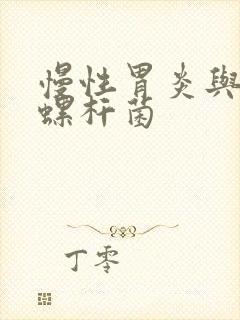 慢性胃炎與
螺杆菌
丁零